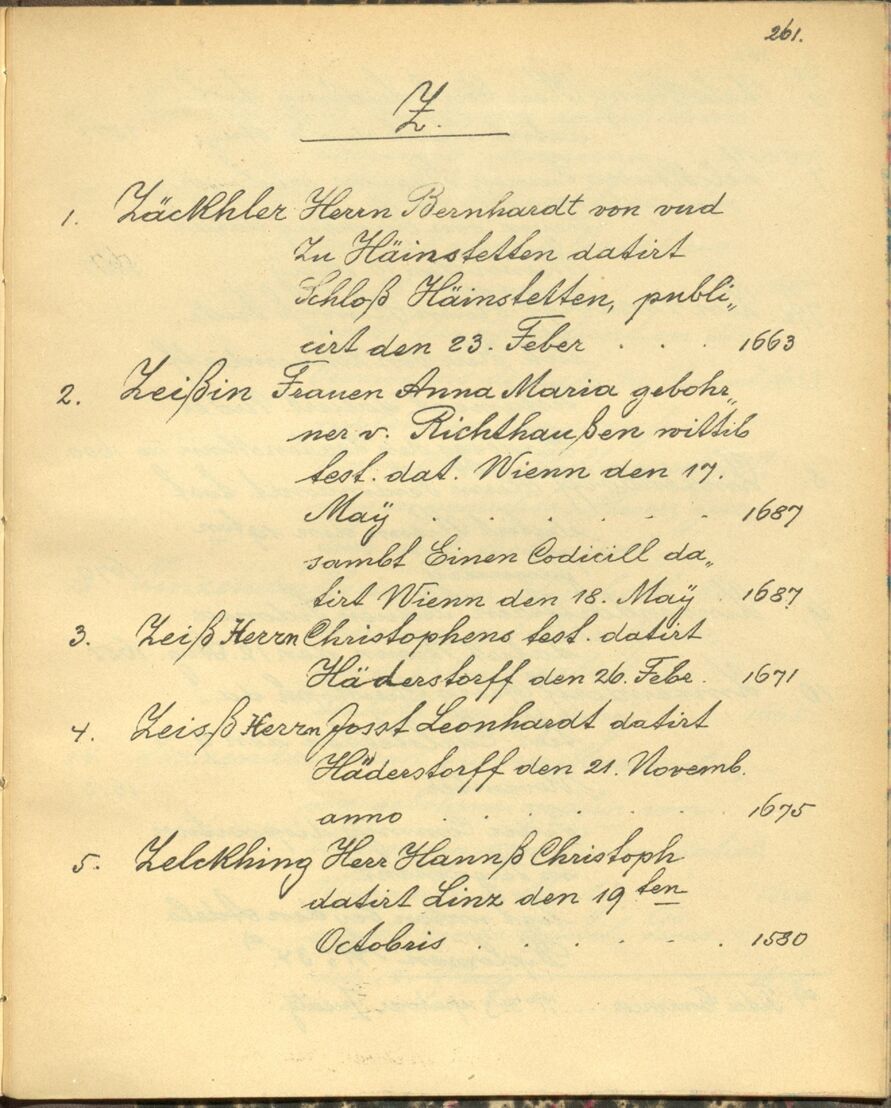 261.
Z.
1. Zäckhler Herrn Bernhardt von vnd
Zu Häinstetten datirt
Schloß Häinstetten, publi„
cirt den 23. Feber . . . 1663
2. Zeißin Frauen Anna Maria gebohr„
ner v. Richthaußen wittib
test. dat. Wienn den 17.
Maÿ . . . . . . 1687
sambt Einen Codicill da„
tirt Wienn den 18. Maÿ . 1687
3. Zeiß Herrn Christophens test. datirt
Häderstorff den 26. Febr. 1671
4. Zeisß Herrn Josst Leonhardt datirt
Häderstorff den 21. Novemb.
anno . . . . . . 1675
5. Zelckhing Herr Hannß Christoph
datirt Linz den 19ten
Octobris . . . . . . 1580